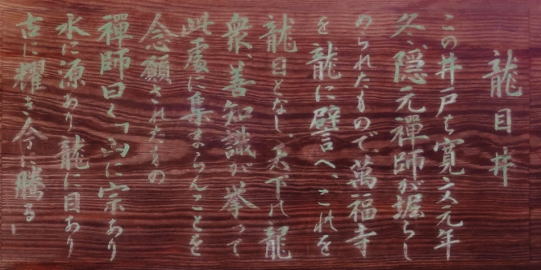 龍目井
この井戸は寛文元年
冬、隠元禅師が堀らし
められたもので萬福寺
を龍に譬へ、これを
龍目となし、天下の龍
衆善知識が挙って
此處に集まらんことを
念願されたもの
禪師曰く「山に宗あり
水に源あり龍に目あり
古に耀き今に騰る」